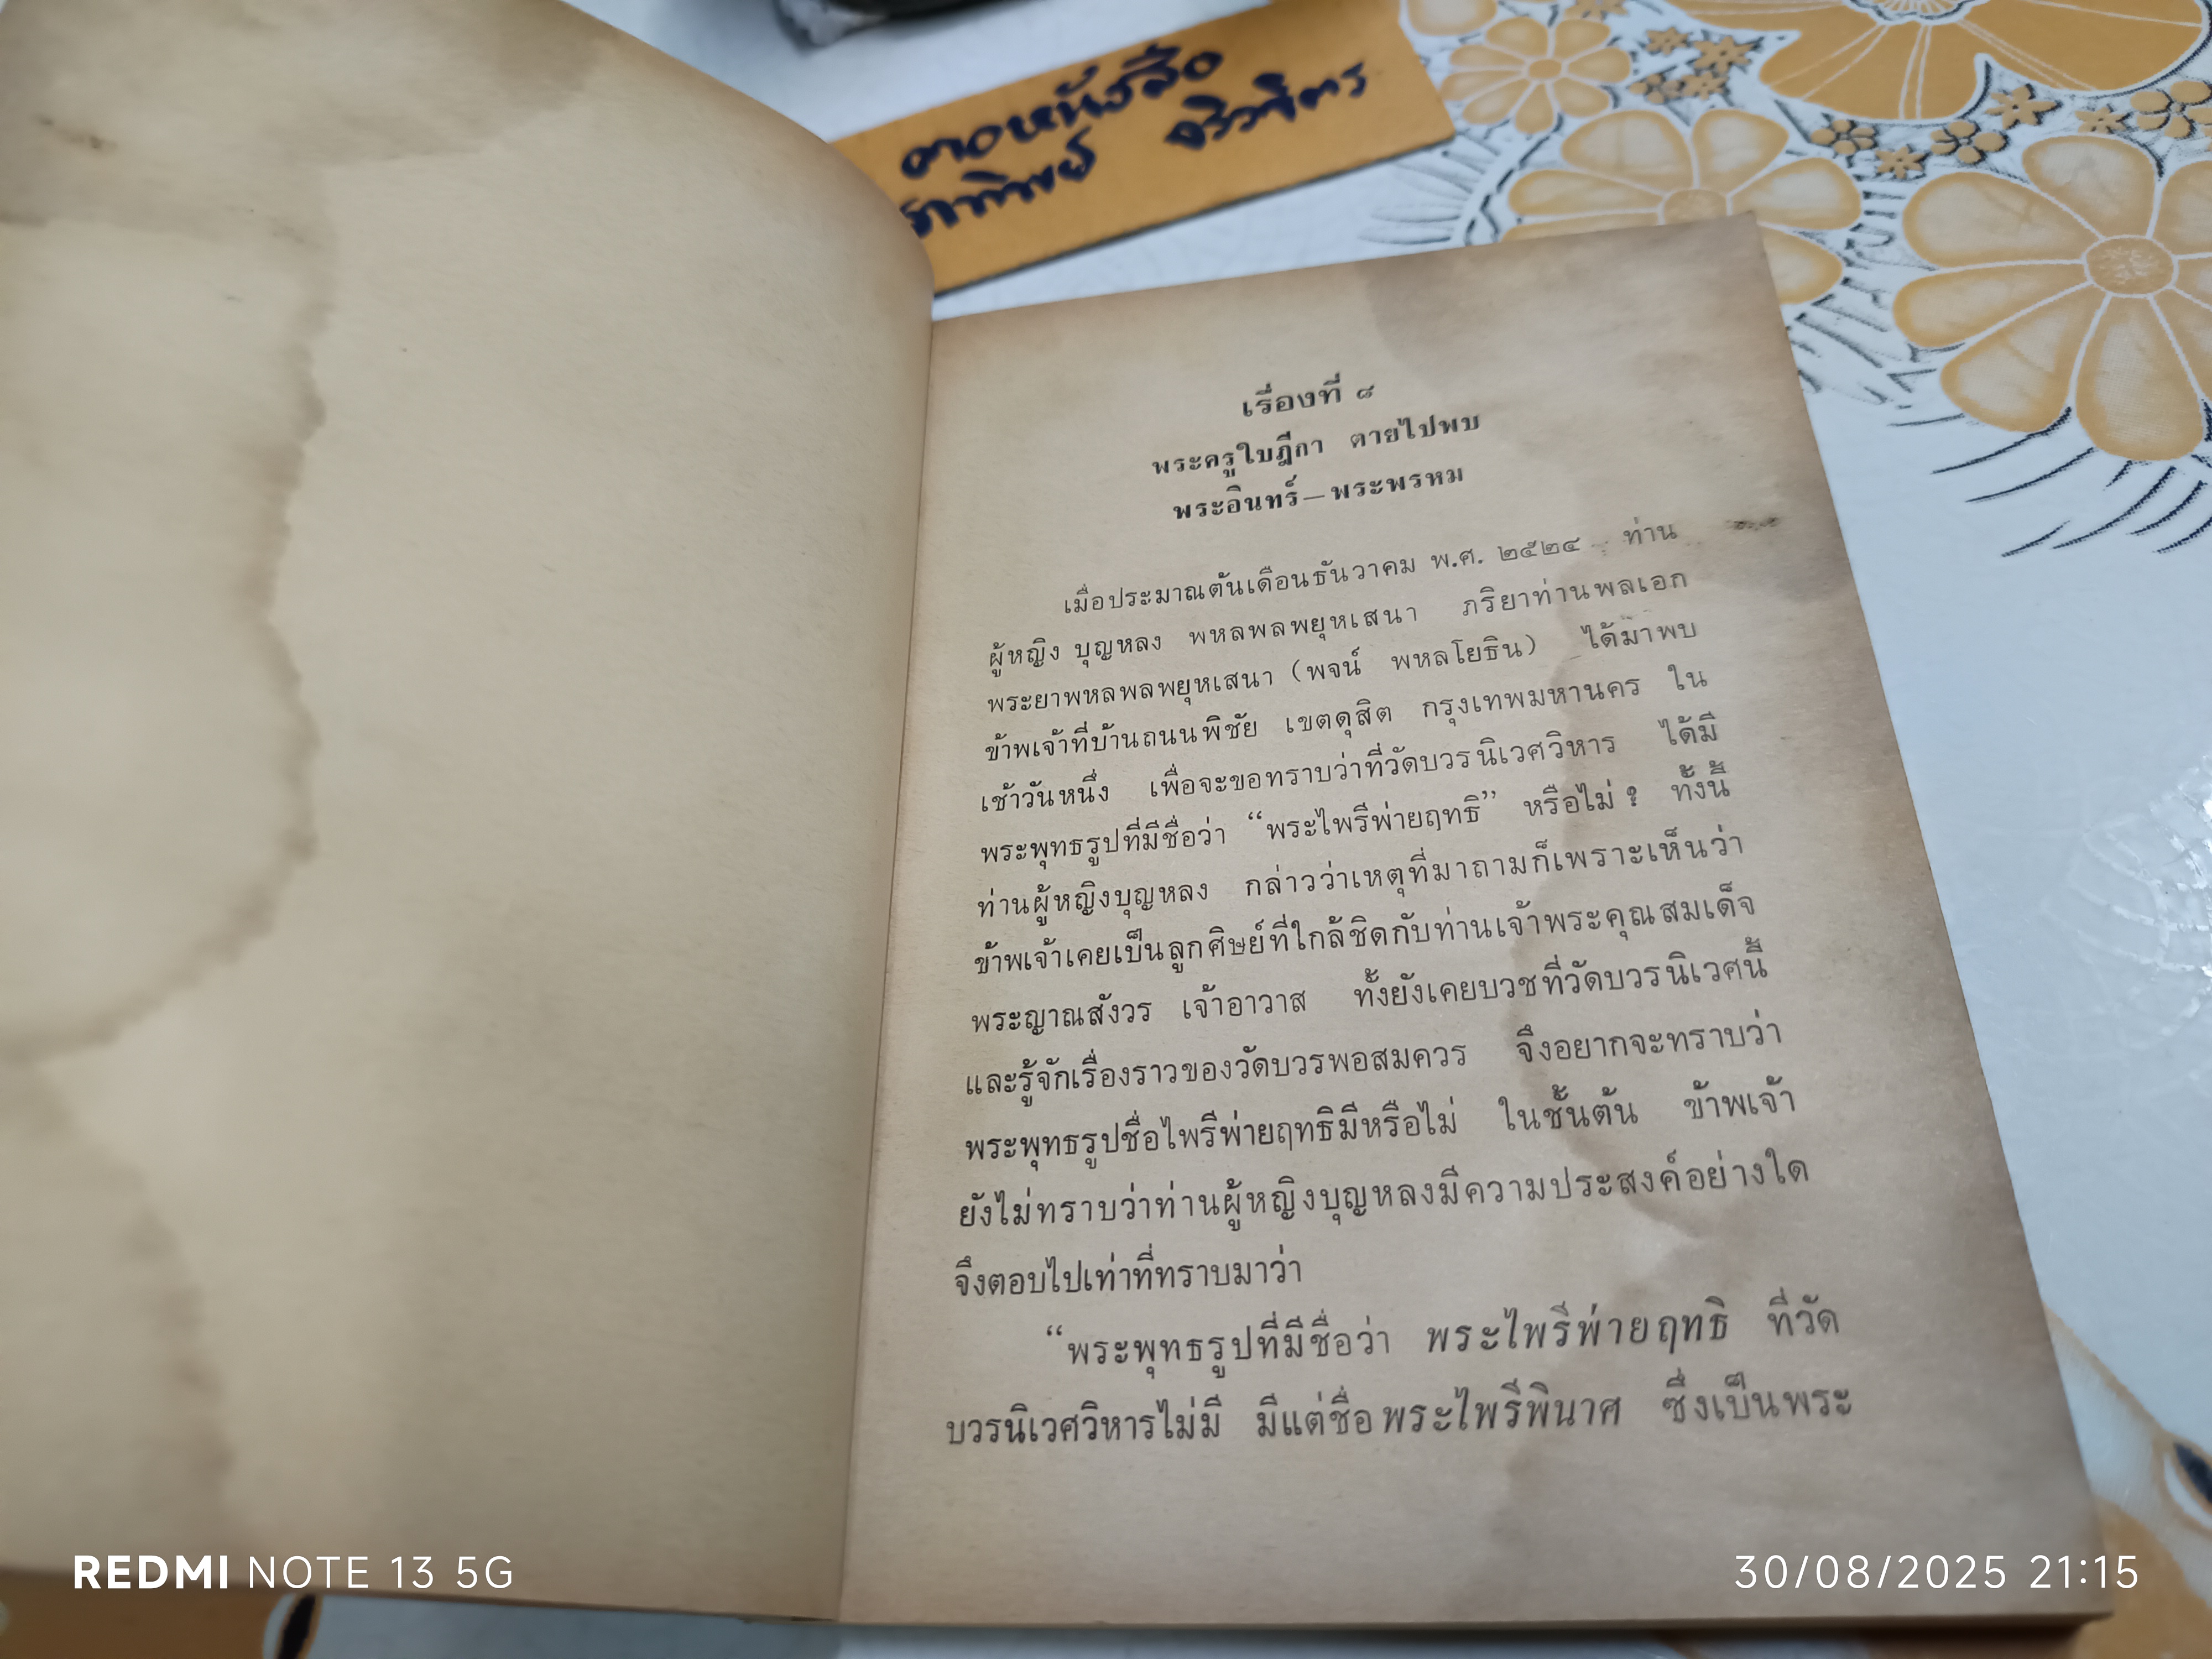 คอหนังสือ
เรื่องที่ ๘
พระครูใบฎีกา ตายไปพบ
พระอินทร์—พระพรหม
เมื่อประมาณต้นเดือนธันวาคม พ.ศ. ๒๕๒๔ ท่าน
ผู้หญิง บุญหลง พหลพลพยุหเสนา ภริยาท่านพลเอก
พระยาพหลพลพยุหเสนา (พจน์ พหลโยธิน) ได้มาพบ
ข้าพเจ้าที่บ้านถนนพิชัย เขตดุสิต กรุงเทพมหานคร ใน
เช้าวันหนึ่ง เพื่อจะขอทราบว่าที่วัดบวรนิเวศวิหาร ได้มี
พระพุทธรูปที่มีชื่อว่า “พระไพรีพ่ายฤทธิ” หรือไม่ ? ทั้งนี้
ท่านผู้หญิงบุญหลง กล่าวว่าเหตุที่มาถามก็เพราะเห็นว่า
ข้าพเจ้าเคยเป็นลูกศิษย์ที่ใกล้ชิดกับท่านเจ้าพระคุณสมเด็จ
พระญาณสังวร เจ้าอาวาส ทั้งยังเคยบวชที่วัดบวรนิเวศนี้
และรู้จักเรื่องราวของวัดบวรพอสมควร จึงอยากจะทราบว่า
พระพุทธรูปชื่อไพรีพ่ายฤทธิมีหรือไม่ ในชั้นต้น ข้าพเจ้า
ยังไม่ทราบว่าท่านผู้หญิงบุญหลงมีความประสงค์อย่างใด
จึงตอบไปเท่าที่ทราบมาว่า
“พระพุทธรูปที่มีชื่อว่า พระไพรีพ่ายฤทธิ ที่วัด
บวรนิเวศวิหารไม่มี มีแต่ชื่อพระไพรีพินาศ ซึ่งเป็นพระ
REDMI NOTE 13 5G
30/08/2025 21:15